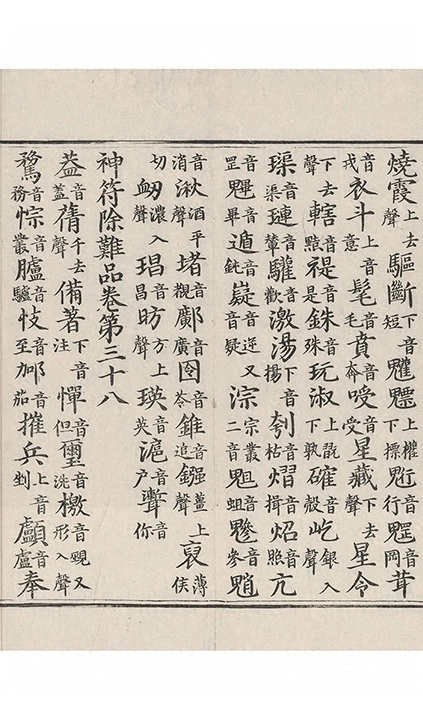 燒霞上去聲驅斷音短魒上權下標音行音岡茸
音戎衣斗上音意髦音毛賁音奔音受星藏下去星令
下去聲轄音黠禔音是銖音殊玩淑上翫下孰確音殼屹銀入聲
璖音渠璉音輦驩音歡激湯下音揚刳音枯熠音揖炤音照亢
音罡音畢遁音鈍嶷音逆又音疑淙音宗叢二音音蛆音參魈
音消湫酒平聲堵音覩鄺音廣囹音苓錐音追鏹薑上聲裒薄侯
切衂濃入聲琩音昌昉方上聲瑛音英滬音戶聻音你
神符除難品卷第三十八
葢音蓋蒨千去聲俻著下音注憚音但璽音洗檄音覡又形入聲
鶩音務悰音叢臚音驢忮音至音茄摧兵上音剉顱音盧奉